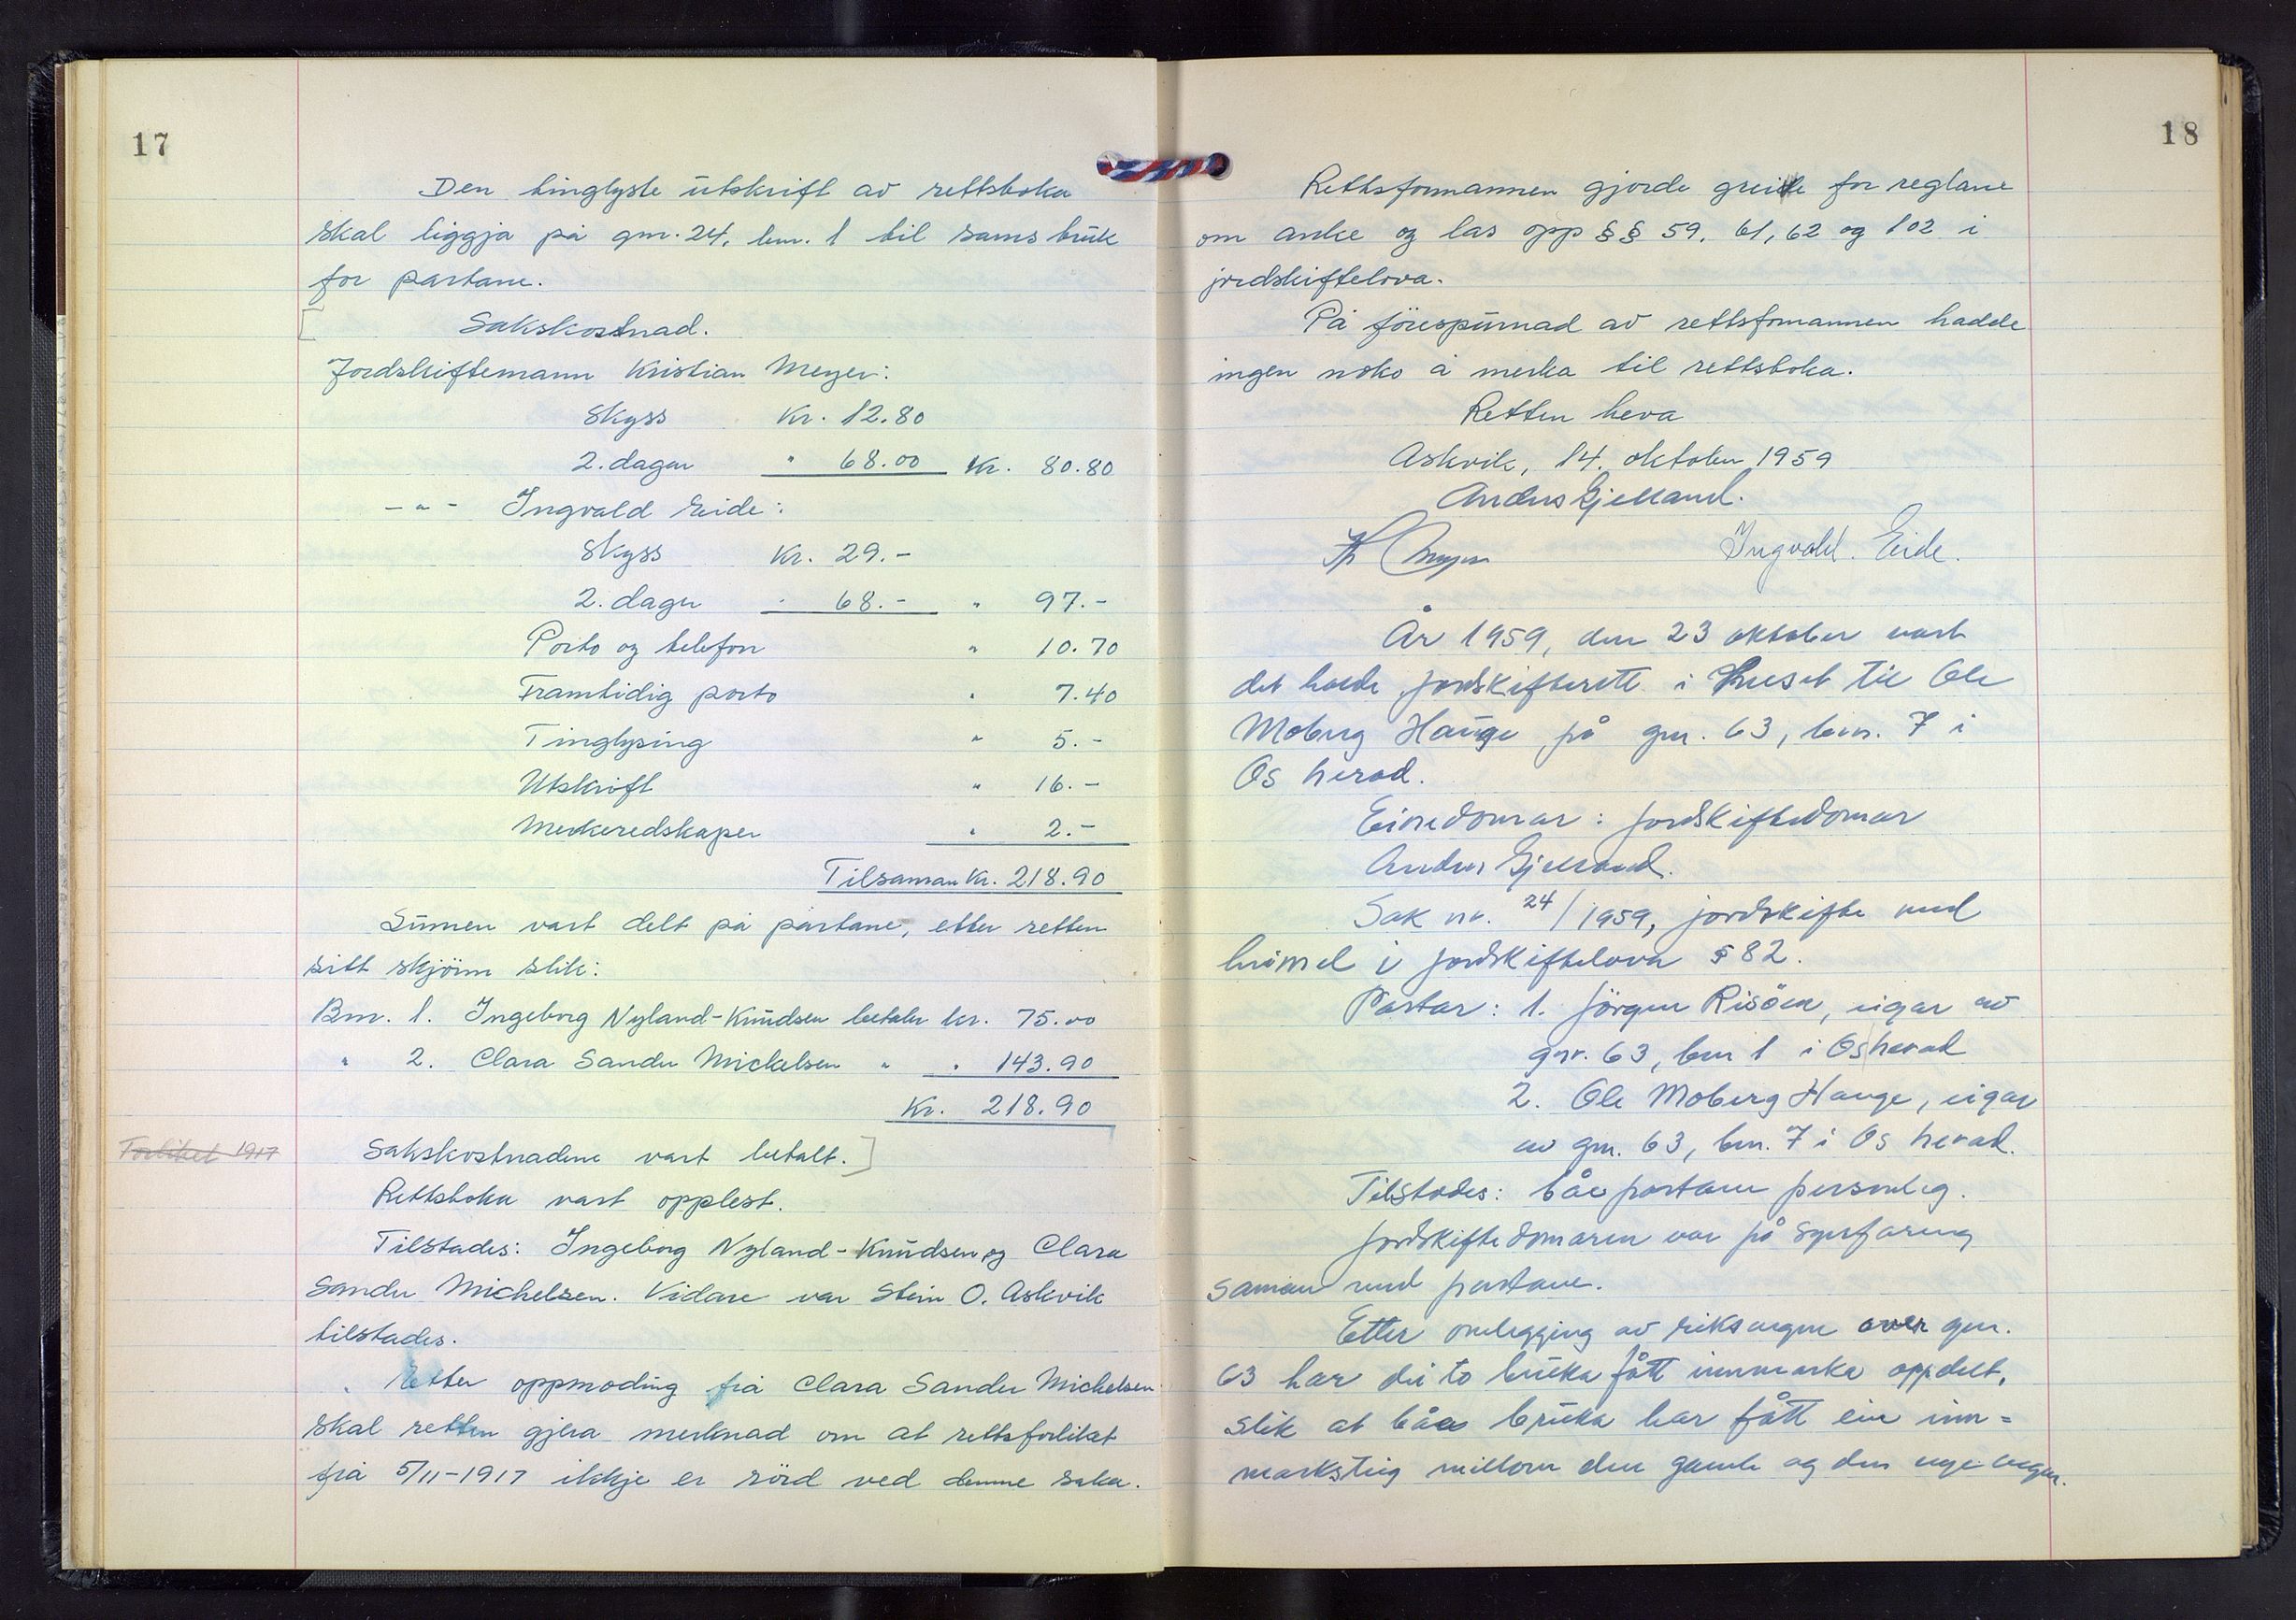 17
Den tinglyste utskrift av rettsboka
skal liggja på gnr. 24, bnr. 1 til sams bruk
for partane.
[ Sakskostnad.
Jordskiftemann Kristian Meyer:
Skyss Kr. 12.80
2. dagar " 68.00 Kr. 80.80
- " - Ingvald Eide:
Skyss Kr. 29.-
2. dagar " 68.- " 97.-
Porto og telefon " 10.70
Framtidig porto " 7.40
Tinglysing " 5.-
Utskrift " 16.-
Merkeredskaper " 2.-
Tilsaman Kr. 218.90
Sumen vart delt på partane, etter retten
sitt skjönn slik:
Bnr. 1. Ingeborg Nyland-Knudsen betaler kr. 75.00
" 2. Clara Sander Mickelsen " " 143.90
Kr. 218.90
Forliket 1917
Sakskostnadene vart betalt. ]
Rettsboka vart opplest.
Tilstades: Ingeborg Nyland-Knudsen og Clara
Sander Michelsen. Vidare var Stein O. Askvik
tilstades.
Etter oppmoding frå Clara Sander Michelsen
skal retten gjera merknad om at rettsforliket
frå 5/11-1917 ikkje er rörd ved denne saka.
18
Rettsformannen gjorde greide for reglane
om anke og las opp §§ 59, 61, 62 og 102 i
jordskiftelova.
På förespurnad av rettsformannen hadde
ingen noko å merka til rettsboka.
Retten heva
Askvik, 14. oktober 1959
Anders Gjelland.
Kr Meyer Ingvald Eide.
År 1959, den 23 oktober vart
det halde jordskifterett i huset til Ole
Moberg Hauge på gnr. 63, bnr. 7 i
Os herad.
Einedomar: jordskiftedomar
Anders Gjelland.
Sak nr. 24/1959, jordskifte med
heimel i jordskiftelova § 82.
Partar: 1. Jörgen Risöen, eigar av
gnr. 63, bnr 1 i Os herad
2. Ole Moberg Hauge, eigar
av gnr. 63, bnr. 7 i Os herad.
Tilstades: båe partane personleg.
Jordskiftedomaren var på synfaring
saman med partane.
Etter omlegging av riksvegen over gnr.
63 har dei to bruka fått innmarka oppdelt,
slik at båe bruka har fått ein inn=
marksteig millom den gamle og den nye vegen.